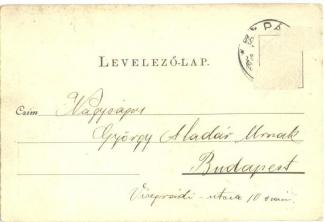 PÁ
LEVELEZŐ-LAP.
Czím: Nagyságos
György Aladár Urnak
Budapest
Visegrádi-utcza 10 szám.